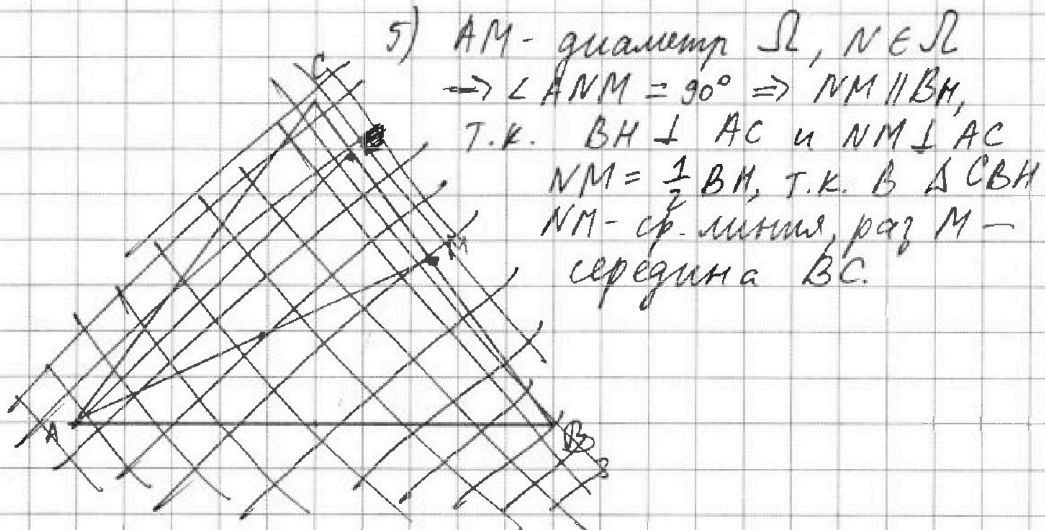 5) AM - диаметр Ω, N ∈ Ω
=> ∠ANM = 90° => NM || BH,
т.к. BH ⊥ AC и NM ⊥ AC
NM = 1/2 BH, т.к. в Δ CBH
NM - ср. линия, раз M —
середина BC.
C
M
A
B
B